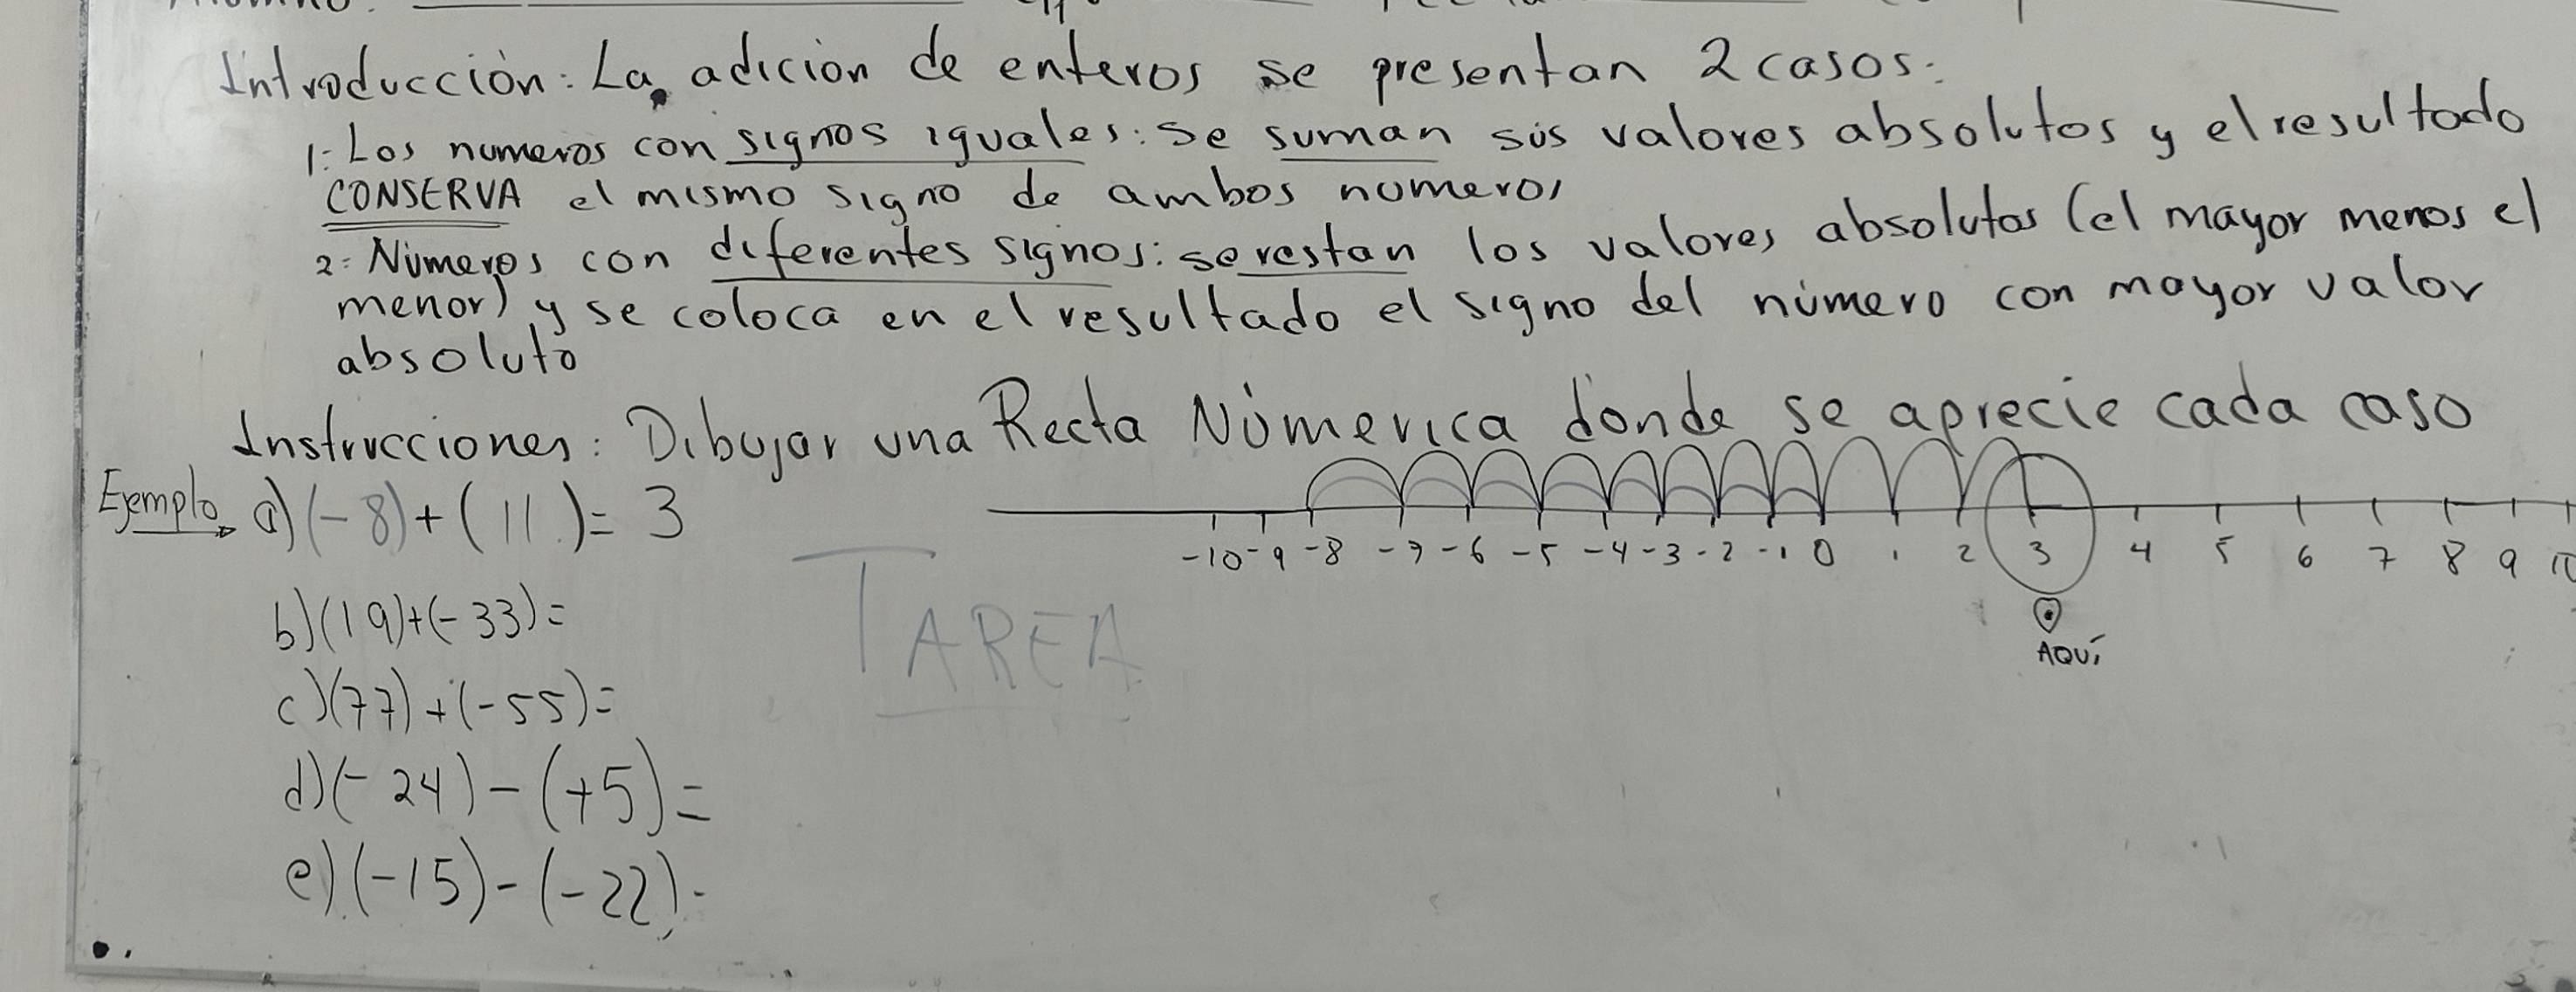 Introducción: La adición de enteros se presentan 2 casos:
1:- Los numeros con signos iguales: se suman sus valores absolutos y el resultado
CONSERVA el mismo signo de ambos numeros
2:- Números con diferentes signos: se restan los valores absolutos (el mayor menos el
menor) y se coloca en el resultado el signo del número con mayor valor
absoluto
Instrucciones: Dibujar una Recta Númerica donde se aprecie cada caso
Ejemplo a) (-8) + (11) = 3
-10 -9 -8 -7 -6 -5 -4 -3 -2 -1 0 1 2 3 4 5 6 7 8 9 10
AQUÍ
b) (19) + (-33) =
TAREA
c) (77) + (-55) =
d) (-24) - (+5) =
e) (-15) - (-22) =